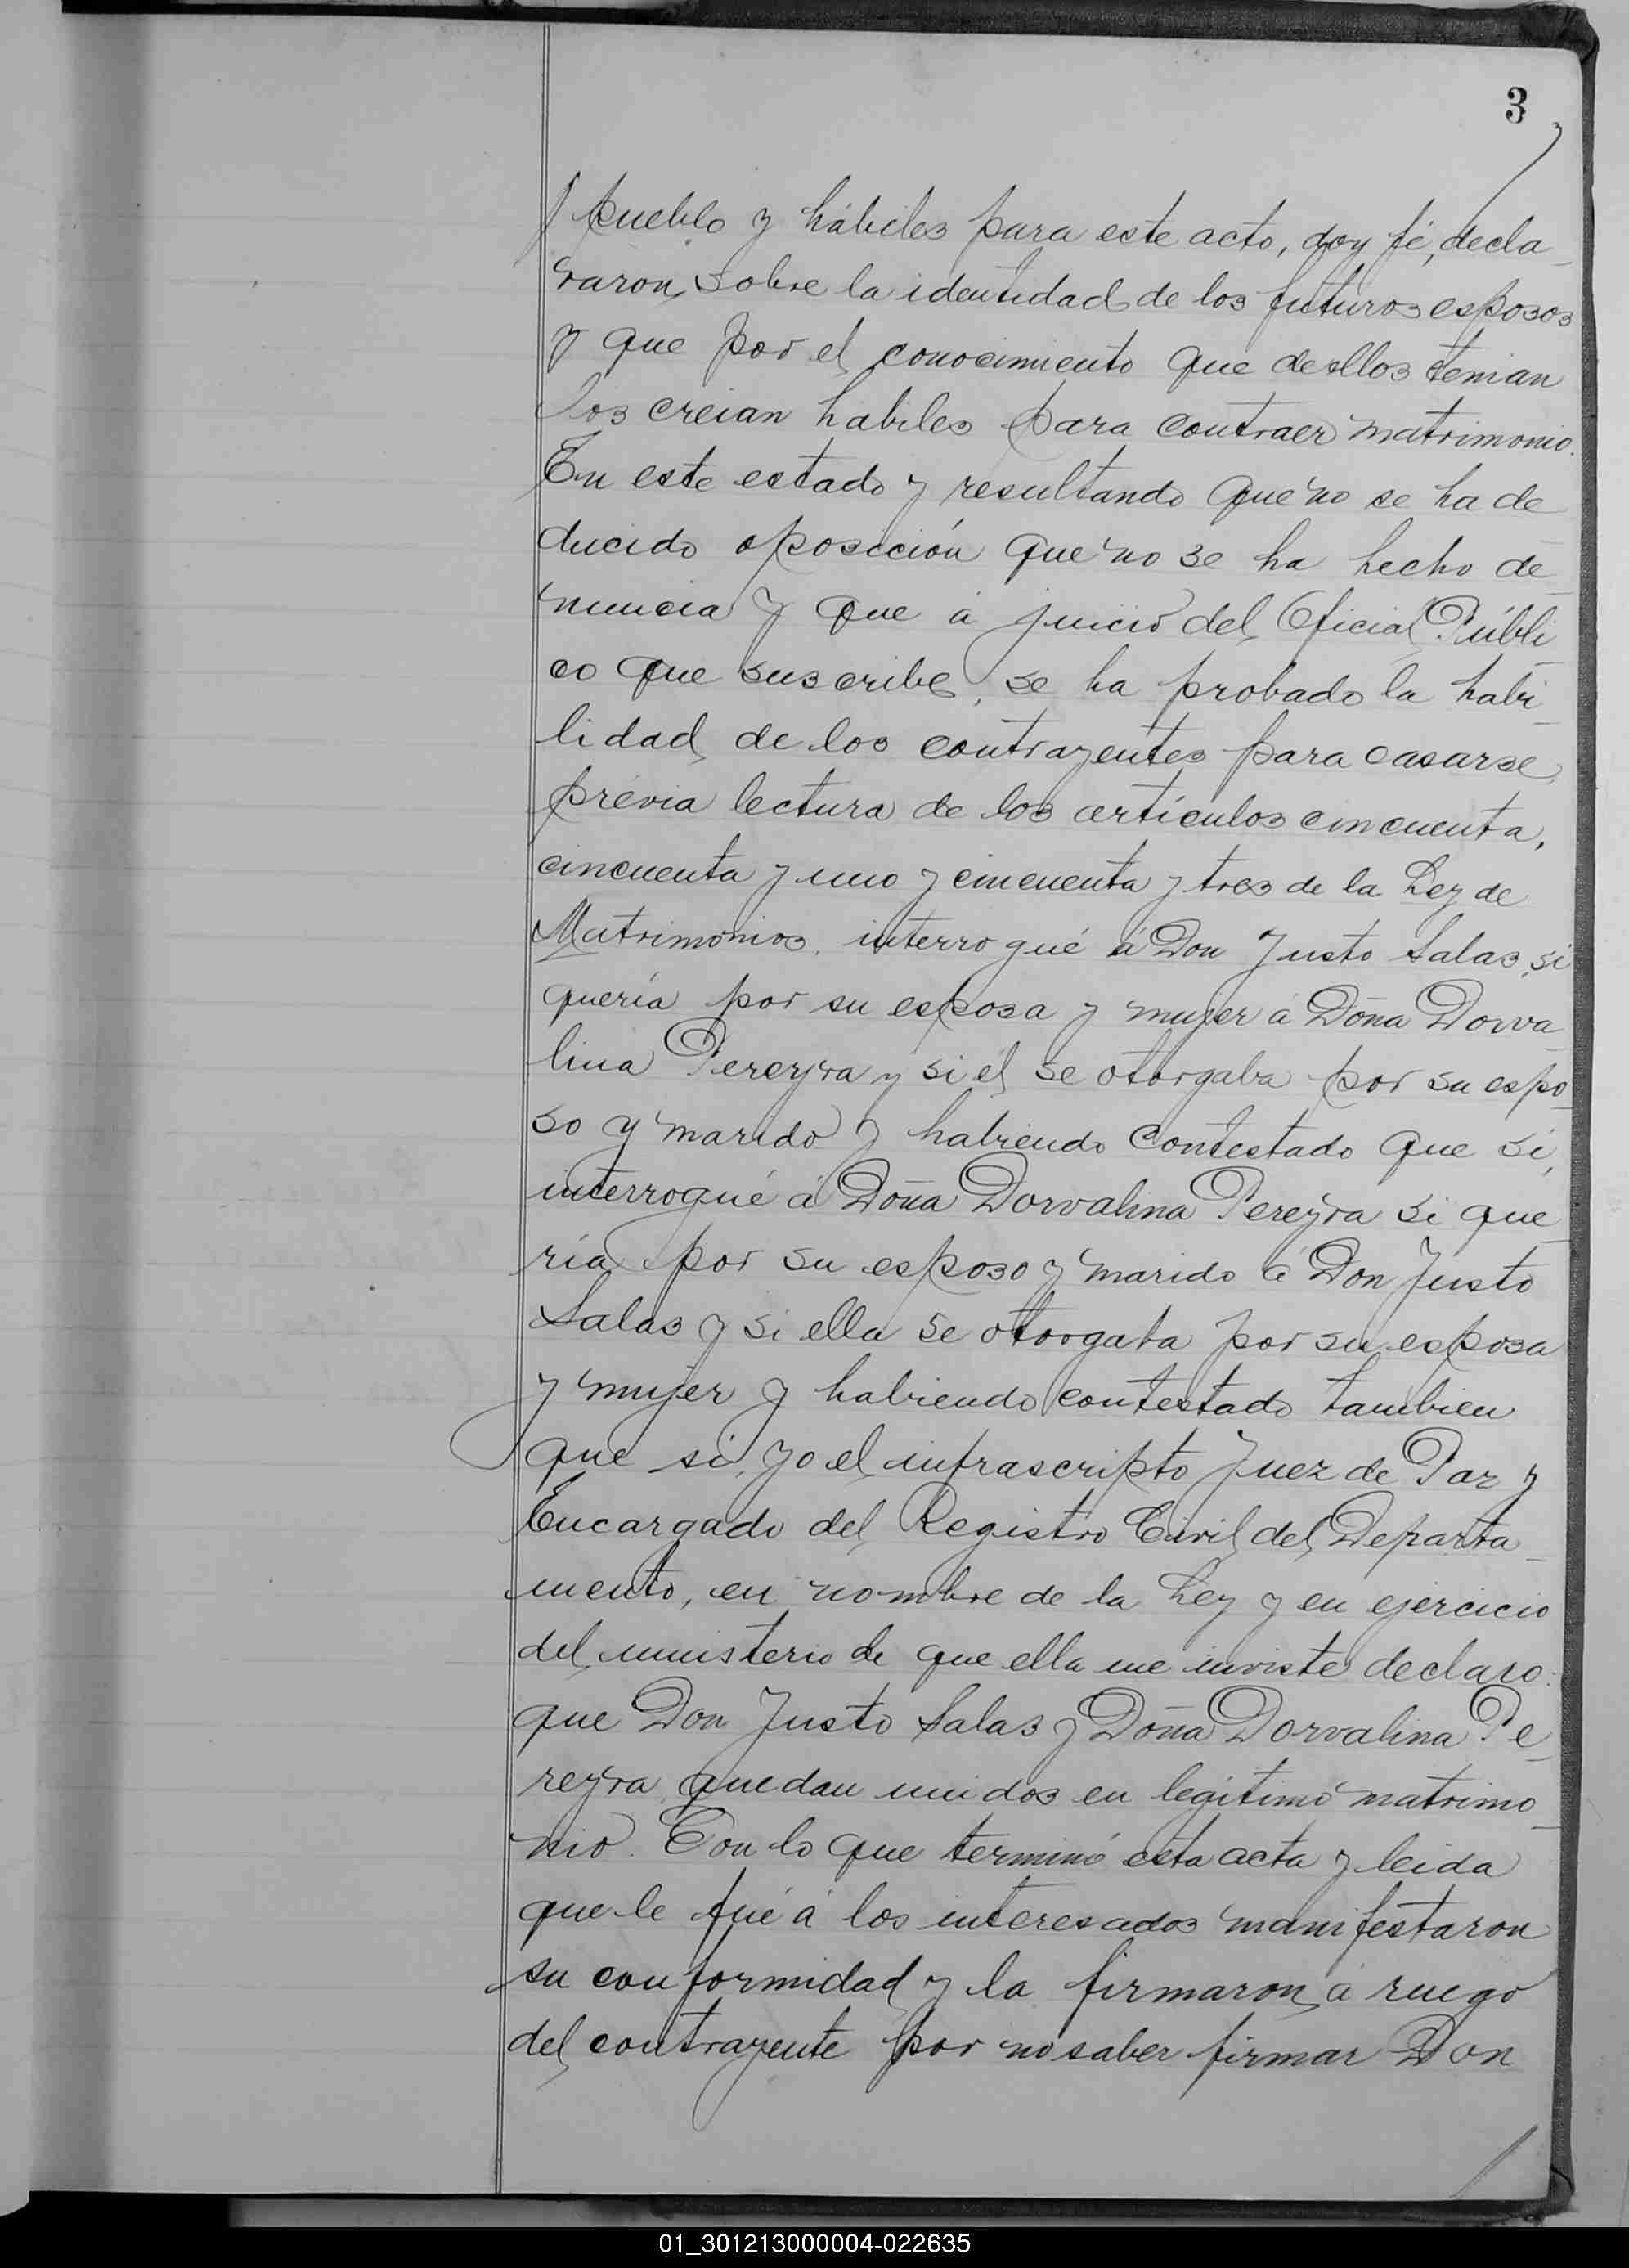 3
pueblo y hábiles para este acto, doy fé, decla_
raron sobre la identidad de los futuros esposos
y que por el conocimiento que de ellos tenian
los creian habiles para contraer matrimonio.
En este estado y resultando que no se ha de
ducido oposición que no se ha hecho de_
nuncia y que á juicio del Oficial Públi_
co que suscribe, se ha probado la habi_
lidad de los contrayentes para casarse,
prévia lectura de los artículos cincuenta,
cincuenta y uno y cincuenta y tres de la Ley de
Matrimonios, interrogué á Don Justo Salas, si
quería por su esposa y mujer á Doña Dorva_
lina Pereyra y si él se otorgaba por su espo_
so y marido y habiendo contestado que sí,
interrogué á Doña Dorvalina Pereyra si que_
ría por su esposo y marido á Don Justo
Salas y si ella se otorgaba por su esposa
y mujer y habiendo contestado tambien
que si, yo el infrascripto Juez de Paz y
Encargado del Registro Civil del Departa_
mento, en nombre de la Ley y en ejercicio
del ministerio de que ella me inviste declaro:
que Don Justo Salas y Doña Dorvalina Pe_
reyra quedan unidos en legítimo matrimo_
nio. Con lo que terminó esta acta y leida
que le fué á los interesados manifestaron
su conformidad y la firmaron, á ruego
del contrayente por no saber firmar Don
01_301213000004-022635